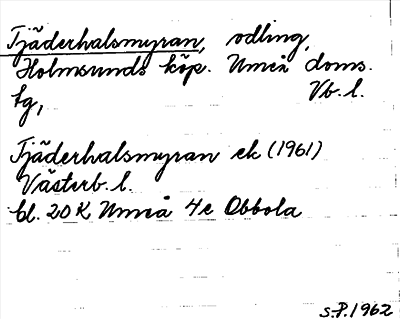 Tjäderhalsmyran, odling,
Holmsunds köp. Umeå doms.
tg, Vb. l.
Tjäderhalsmyran ek (1961)
Västerb. l.
bl. 20 K Umeå 4e Obbola
S.P. 1962